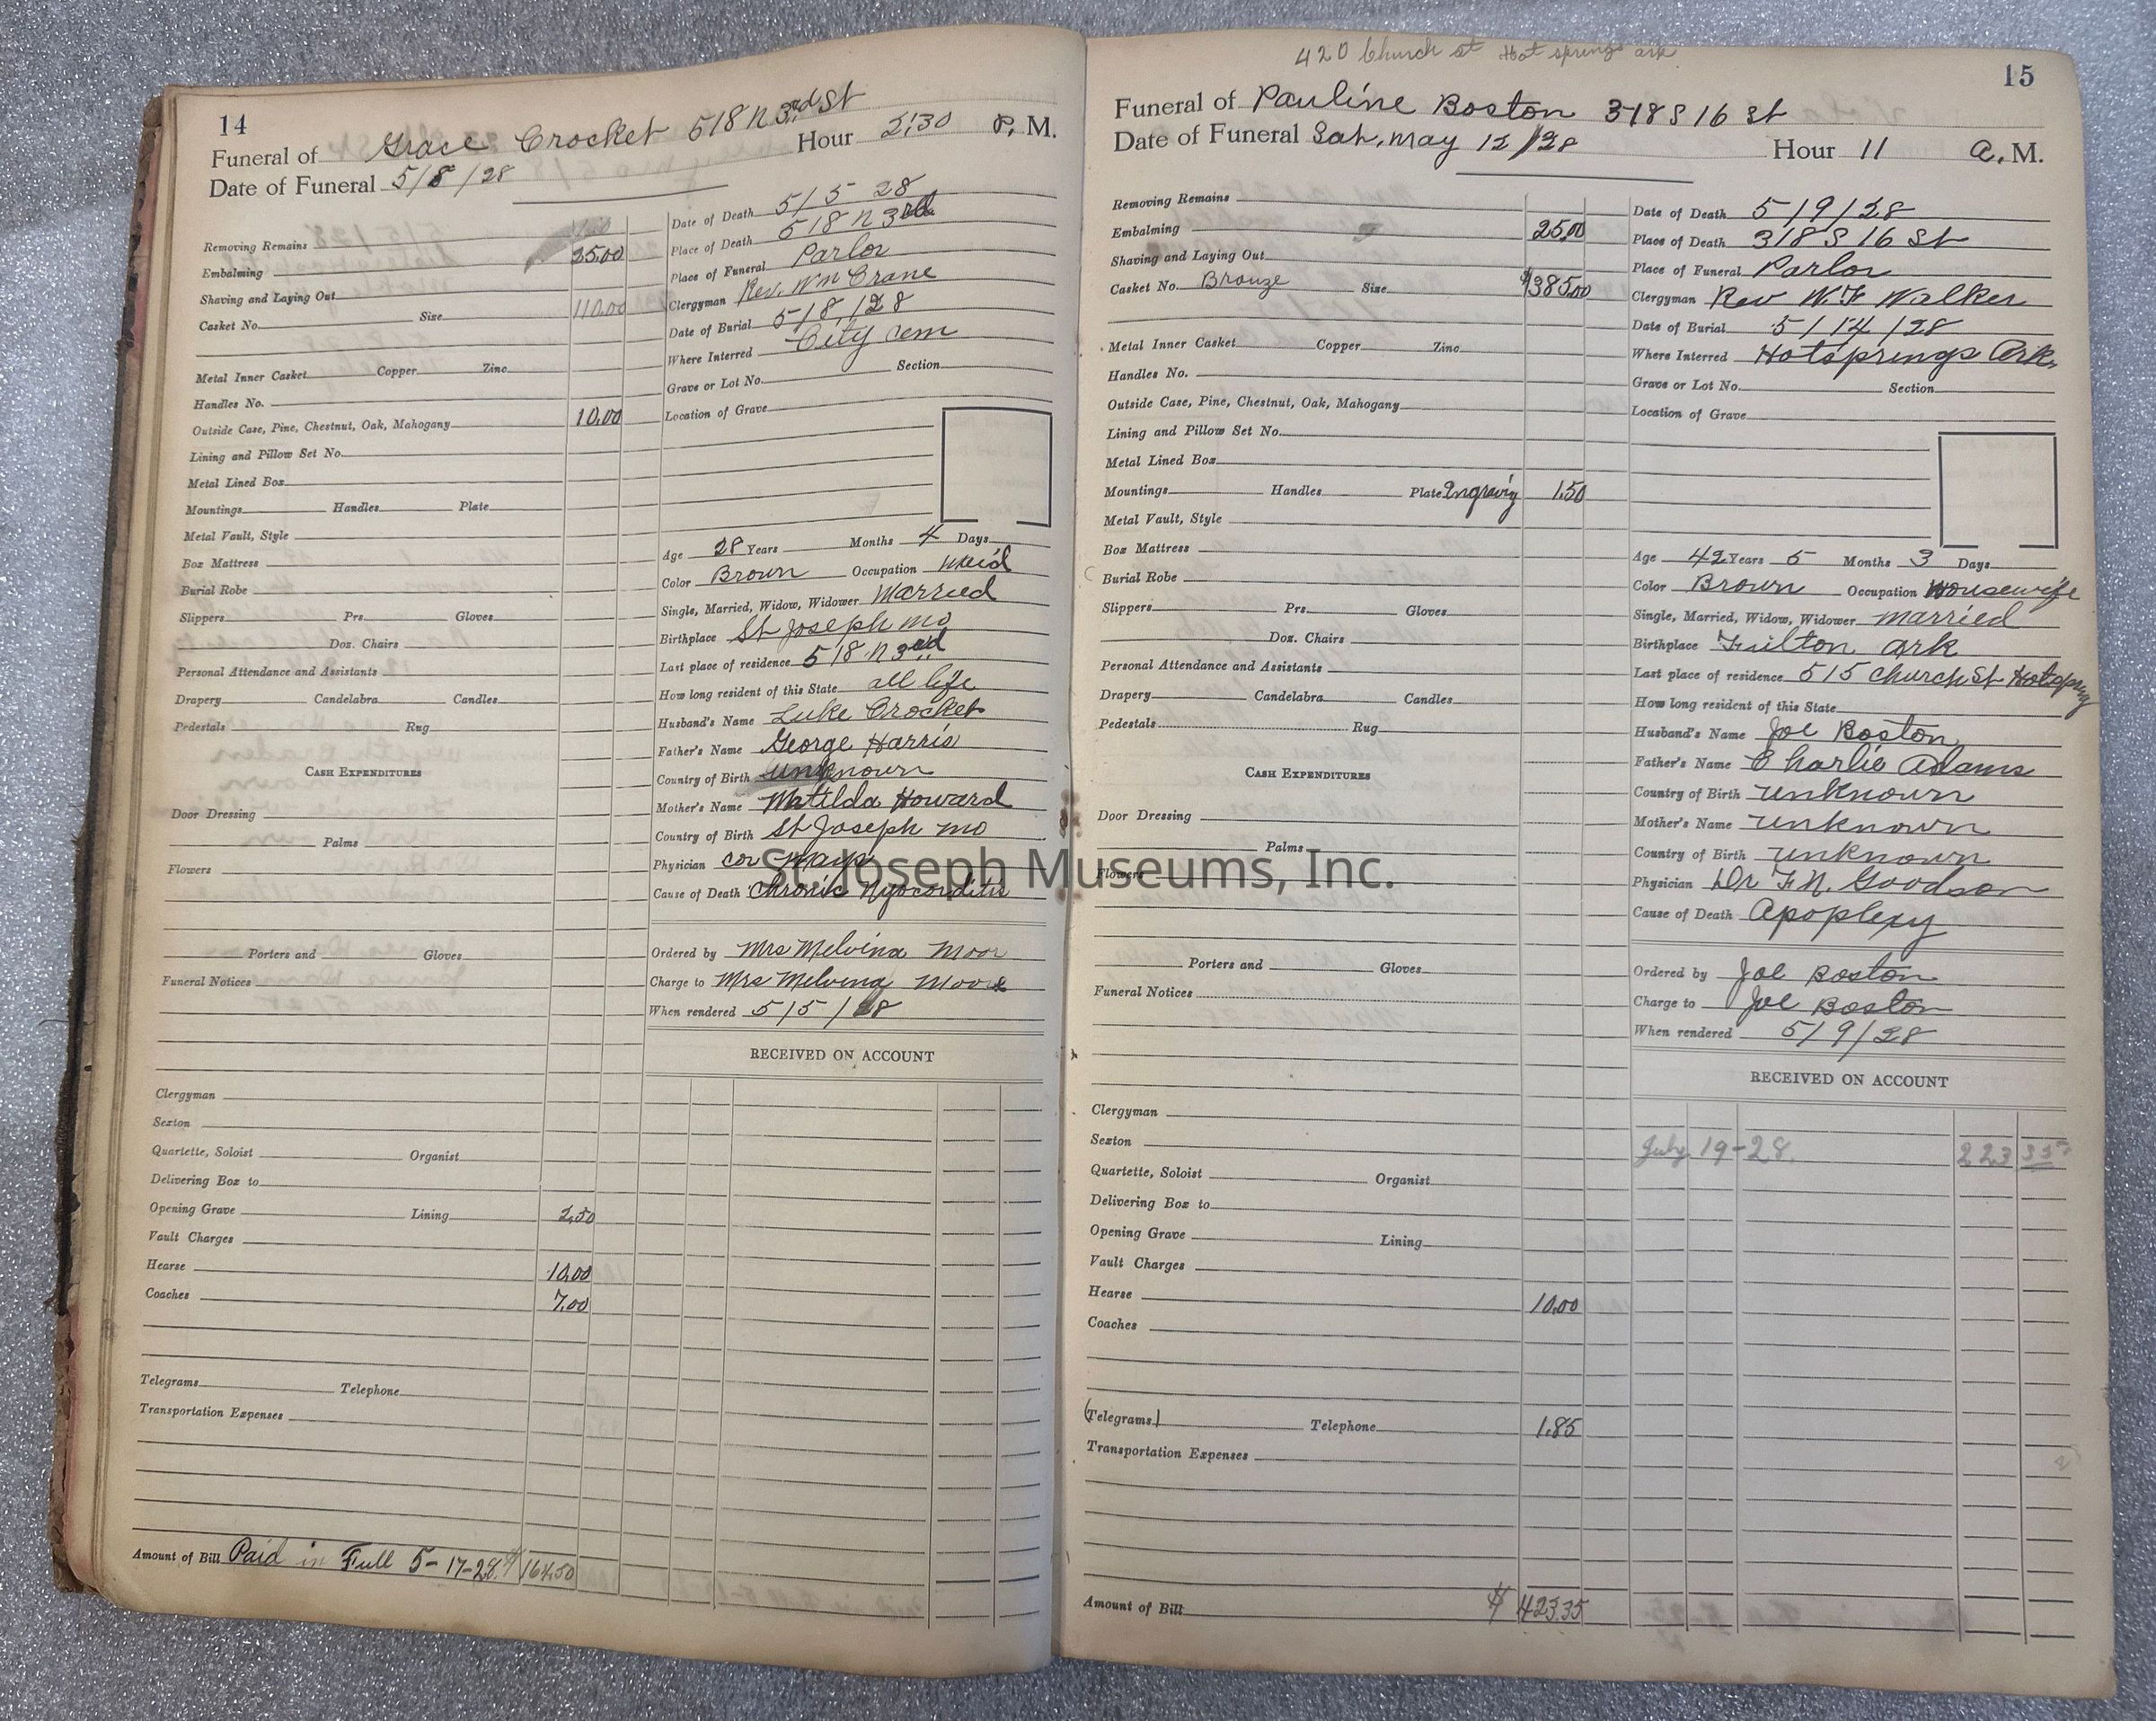 14
Funeral of Grace Crocket 518 N 3rd St
Hour 2:30 P. M.
Date of Funeral 5/8/28
Removing Remains
Embalming 25.00
Shaving and Laying Out
Casket No. Size 110.00
Metal Inner Casket Copper Zinc
Handles No.
Outside Case, Pine, Chestnut, Oak, Mahogany 10.00
Lining and Pillow Set No.
Metal Lined Box
Mountings Handles Plate
Metal Vault, Style
Box Mattress
Burial Robe
Slippers Prs. Gloves
Doz. Chairs
Personal Attendance and Assistants
Drapery Candelabra Candles
Pedestals Rug
CASH EXPENDITURES
Door Dressing
Palms
Flowers
Porters and Gloves
Funeral Notices
Clergyman
Sexton
Quartette, Soloist Organist
Delivering Box to
Opening Grave Lining 2.50
Vault Charges
Hearse 10.00
Coaches 7.00
Telegrams Telephone
Transportation Expenses
Amount of Bill Paid in Full 5-17-28 $164.50
Date of Death 5/5 28
Place of Death 518 N 3rd
Place of Funeral Parlor
Clergyman Rev. Wm Crane
Date of Burial 5/8/28
Where Interred City cem
Grave or Lot No. Section
Location of Grave
Age 28 Years Months 4 Days
Color Brown Occupation Maid
Single, Married, Widow, Widower Married
Birthplace St Joseph Mo
Last place of residence 518 N 3rd
How long resident of this State all life
Husband's Name Luke Crocket
Father's Name George Harris
Country of Birth unknown
Mother's Name Matilda Howard
Country of Birth St Joseph Mo
Physician
Cause of Death Chronic Myocorditis
Ordered by Mrs Melvina Moor
Charge to Mrs Melvina Moore
When rendered 5/5/28
RECEIVED ON ACCOUNT
420 Church st Hot springs ark
15
Funeral of Pauline Boston 318 S 16 St
Date of Funeral Sat, May 12/28
Hour 11 A. M.
Removing Remains
Embalming 25.00
Shaving and Laying Out
Casket No. Bronze Size $385.00
Metal Inner Casket Copper Zinc
Handles No.
Outside Case, Pine, Chestnut, Oak, Mahogany
Lining and Pillow Set No.
Metal Lined Box
Mountings Handles Plate Engraving 1.50
Metal Vault, Style
Box Mattress
Burial Robe
Slippers Prs. Gloves
Doz. Chairs
Personal Attendance and Assistants
Drapery Candelabra Candles
Pedestals Rug
CASH EXPENDITURES
Door Dressing
Palms
Flowers
Porters and Gloves
Funeral Notices
Clergyman
Sexton
Quartette, Soloist Organist
Delivering Box to
Opening Grave Lining
Vault Charges
Hearse 10.00
Coaches
(Telegrams) Telephone 1.85
Transportation Expenses
Amount of Bill $423.35
Date of Death 5/9/28
Place of Death 318 S 16 St
Place of Funeral Parlor
Clergyman Rev W.F Walker
Date of Burial 5/14/28
Where Interred Hotsprings Ark.
Grave or Lot No. Section
Location of Grave
Age 42 Years 5 Months 3 Days
Color Brown Occupation Housewife
Single, Married, Widow, Widower married
Birthplace Fulton Ark
Last place of residence 515 Church St Hotspring
How long resident of this State
Husband's Name Joe Boston
Father's Name Charlie Adams
Country of Birth unknown
Mother's Name unknown
Country of Birth unknown
Physician Dr F.N. Goodson
Cause of Death Apoplexy
Ordered by Joe Boston
Charge to Joe Boston
When rendered 5/9/28
RECEIVED ON ACCOUNT
July 19-28. 223 35
St. Joseph Museums, Inc.